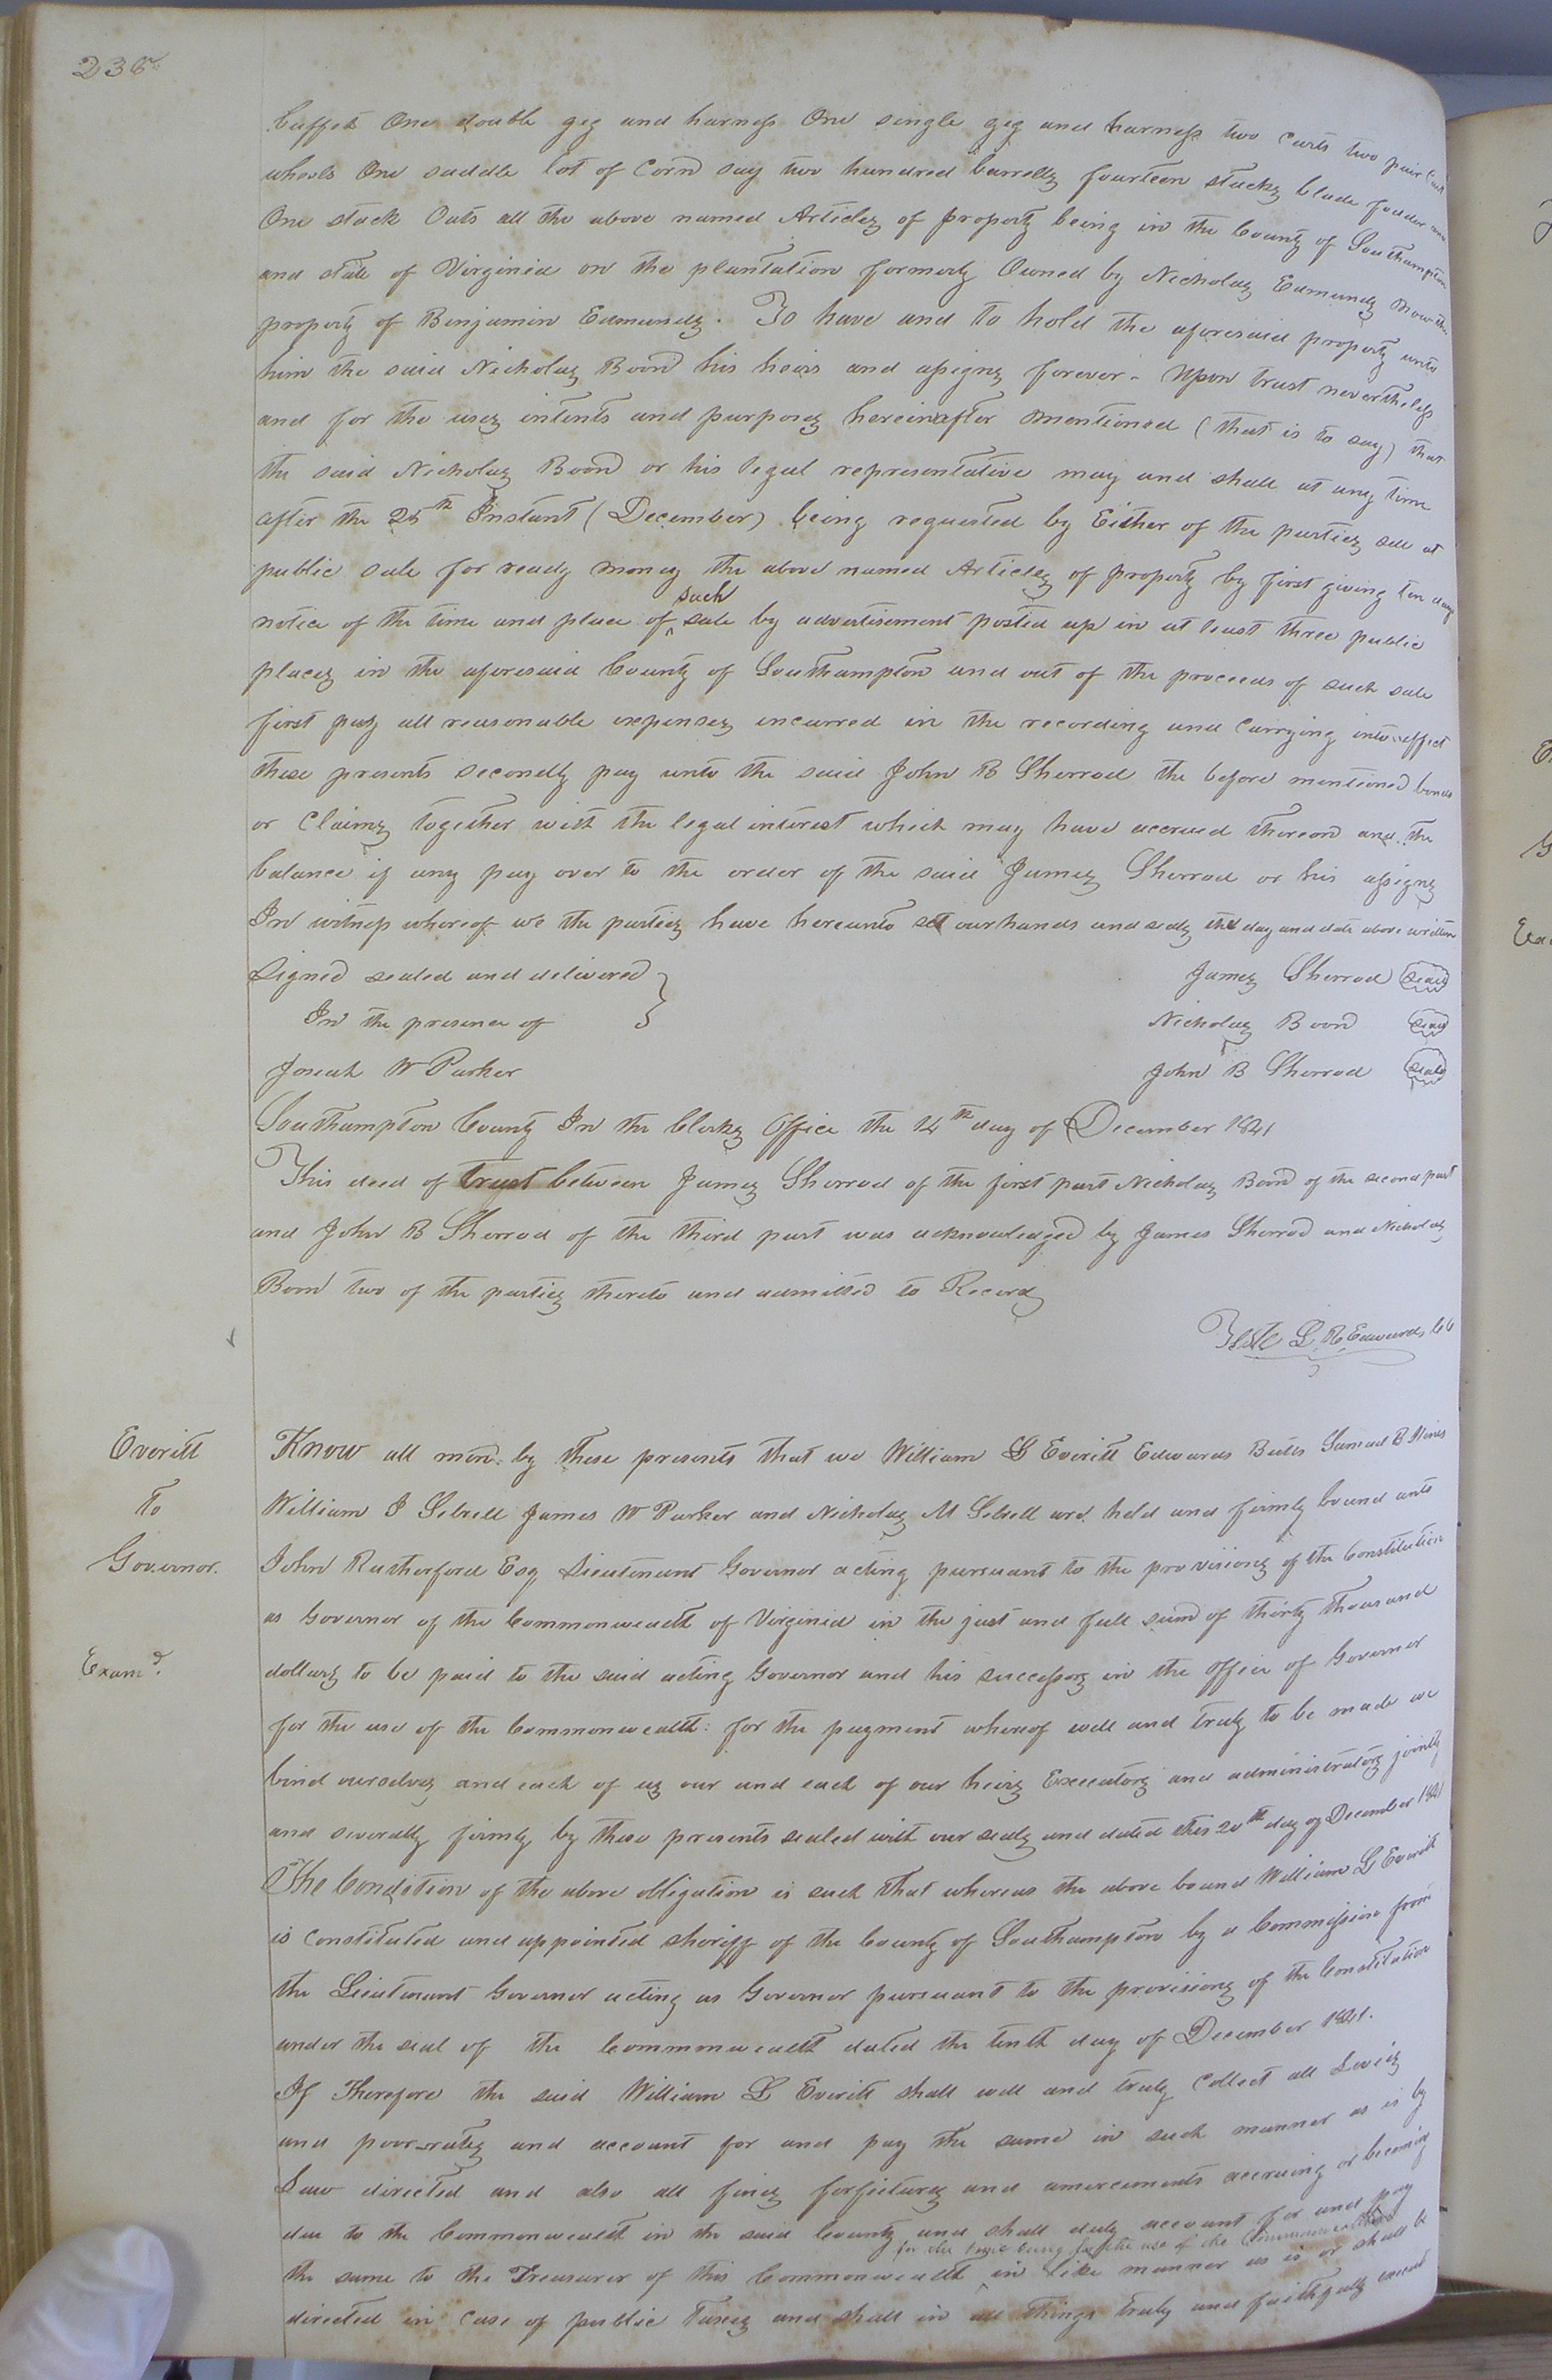 236
buffet One double gig and harness One single gig and harness two carts two pair Cart
wheels One saddle lot of Corn say two hundred barrells fourteen stacks blade fodder
One stack Oats all the above named Articles of property being in the County of Southampton
and state of Virginia on the plantation formerly Owned by Nicholas Edmunds now the
property of Benjamin Edmunds. To have and to hold the aforesaid property unto
him the said Nicholas Boon his heirs and assigns forever. Upon trust nevertheless
and for the uses intents and purposes hereinafter mentioned (that is to say) that
the said Nicholas Boon or his legal representative may and shall at any time
after the 25th Instant (December) being requested by Either of the parties sell at
public sale for ready money the above named Articles of property by first giving ten days
notice of the time and place of such sale by advertisement posted up in at least three public
places in the aforesaid County of Southampton and out of the proceeds of such sale
first pay all reasonable expenses incurred in the recording and Carrying into effect
these presents secondly pay unto the said John B Sherrod the before mentioned bonds
or Claims together with the legal interest which may have accrued thereon and the
balance if any pay over to the order of the said James Sherrod or his assigns
In witness whereof we the parties have hereunto set our hands and seals the day and date above written
Signed sealed and delivered } James Sherrod seal
In the presence of Nicholas Boon seal
Josiah W Parker John B Sherrod seal
Southampton County In the Clerks Office the 14th day of December 1841
This deed of trust between James Sherrod of the first part Nicholas Boon of the second part
and John B Sherrod of the third part was acknowledged by James Sherrod and Nicholas
Boon two of the parties thereto and admitted to Record
Teste L R Edwards CC
Everitt
To
Governor.
Examd.
Know all men by these presents that we William L Everitt Edwards Butts Samuel B Hines
William J Sebrell James W Parker and Nicholas M Sebrell are held and firmly bound unto
John Rutherford Esq Lieutenant Governor acting pursuant to the provisions of the Constitution
as Governor of the Commonwealth of Virginia in the just and full sum of thirty thousand
dollars to be paid to the said acting Governor and his successors in the Office of Governor
for the use of the Commonwealth: for the payment whereof well and truly to be made we
bind ourselves and each of us our and each of our heirs Executors and administrators jointly
and severally firmly by these presents sealed with our seals and dated this 20th day of December 1841
The Condition of the above obligation is such that whereas the above bound William L Everitt
is Constituted and appointed sheriff of the County of Southampton by a Commission from
the Lieutenant Governor acting as Governor pursuant to the provisions of the Constitution
under the seal of the Commonwealth dated the tenth day of December 1841.
If Therefore the said William L Everitt shall well and truly Collect all Levies
and poor-rates and account for and pay the same in such manner as is by
Law directed and also all fines forfeitures and amercements accruing or becoming
due to the Commonwealth in the said County and shall duly account for and pay
for the time being for the use of the Commonwealth
the same to the Treasurer of this Commonwealth in like manner as is or shall be
directed in Case of public Taxes and shall in all things truly and faithfully execute